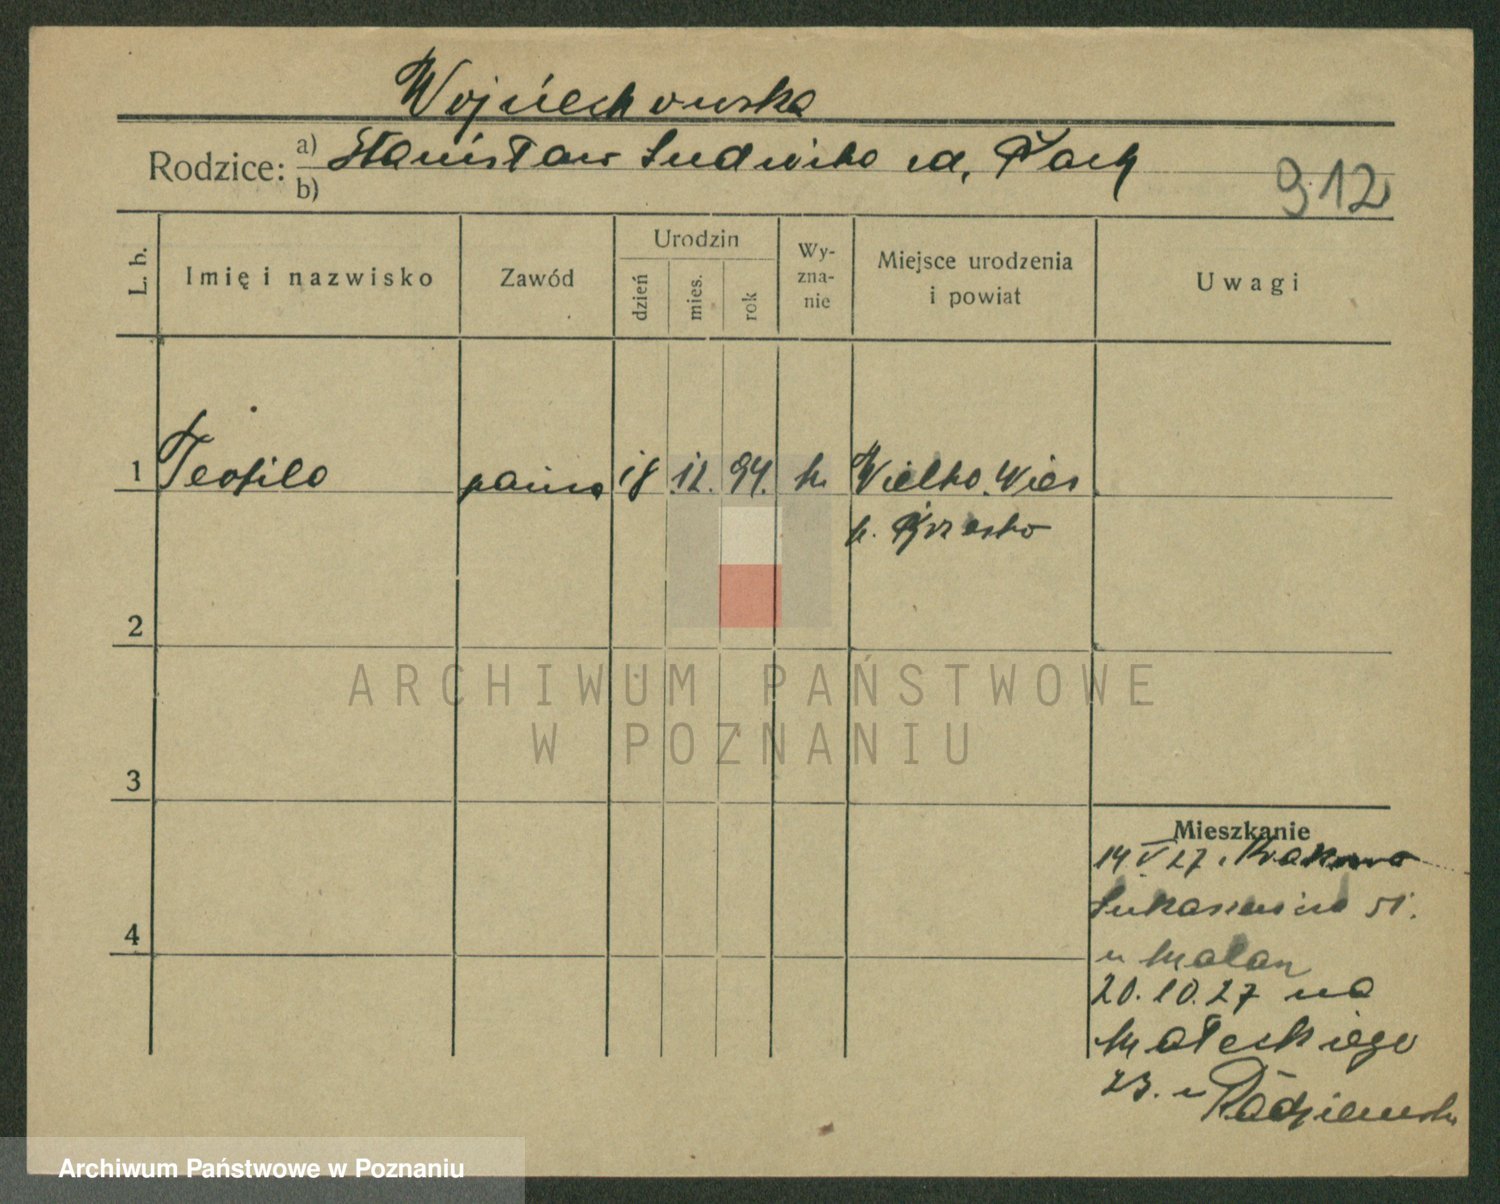 Wojciechowska
Rodzice: a) Stanisław Ludwika
b)
912
L. b.
Imię i nazwisko
Zawód
Urodzin
dzień
mies.
rok
Wy-
zna-
nie
Miejsce urodzenia
i powiat
Uwagi
1 Teofila panna 18 12. 94. k. Wielka Wieś
2
3
4
Mieszkanie
14 V 27. Krakowa
51.
u
20.10.27 na
Małeckiego
23. u
ARCHIWUM PAŃSTWOWE
W POZNANIU
Archiwum Państwowe w Poznaniu